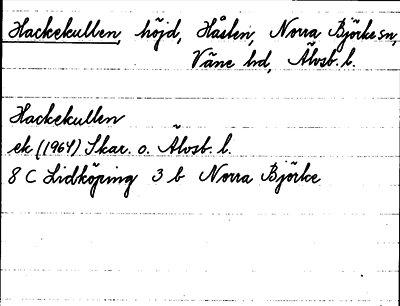 Hackekullen, höjd, Håslen, Norra Björke sn,
Väne hd, Älvsb. l.
Hackekullen
ek (1964) Skar. o. Älvsb. l.
8 C Lidköping 3 b Norra Björke